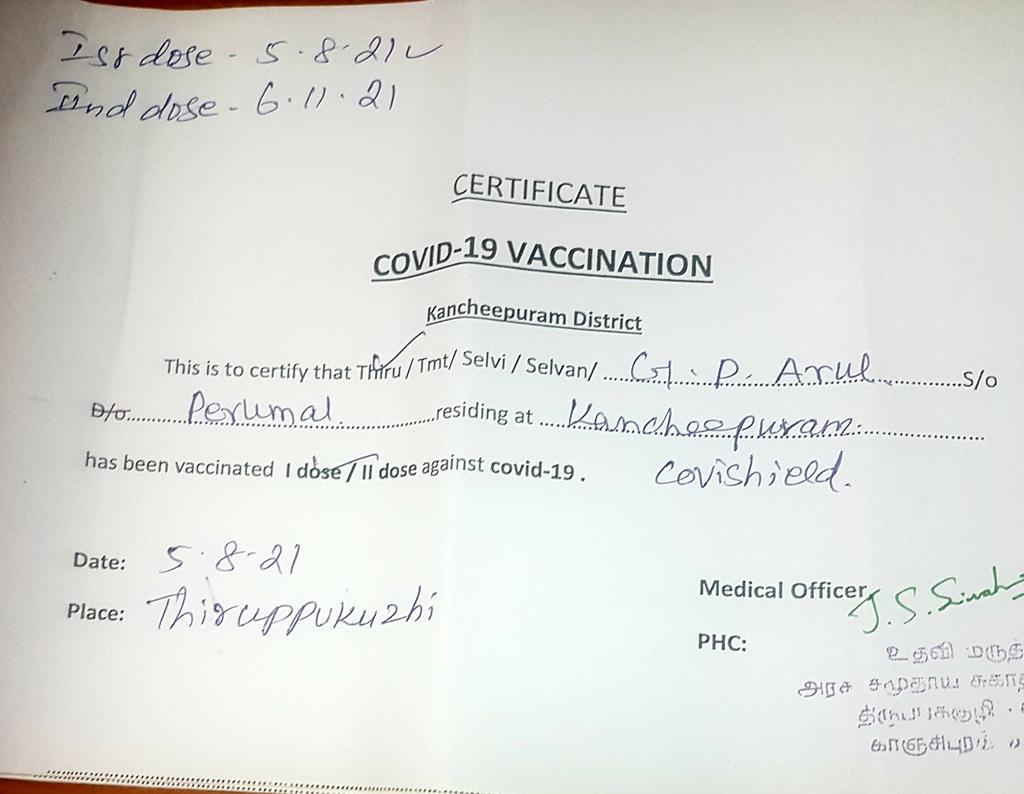 Ist dose - 5.8.21 ✓
IInd dose - 6.11.21
CERTIFICATE
COVID-19 VACCINATION
Kancheepuram District
This is to certify that Thiru / Tmt/ Selvi / Selvan/ ...... P. Arul ............S/o
D/o............ Perumal ................residing at ....Kancheepuram.................
has been vaccinated I dose / II dose against covid-19 . Covishield.
Date: 5.8.21
Place: Thiruppukuzhi
Medical Officer J. S.
PHC:
உதவி மருத்
அரசு சமுதாய சுகா
காஞ்சிபுரம்